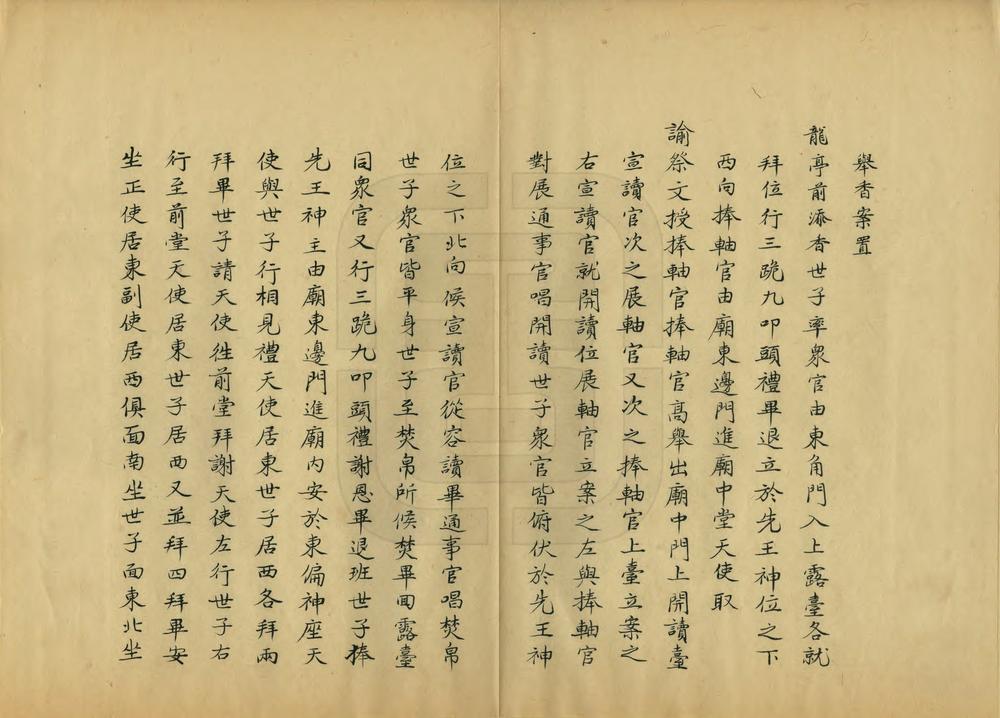 舉香案置
龍亭前添香世子率衆官由東角門入上露臺各就
拜位行三跪九叩頭禮畢退立於先王神位之下
西向捧軸官由廟東邊門進廟中堂天使取
諭祭文授捧軸官捧軸官高舉出廟中門上開讀臺
宣讀官次之展軸官又次之捧軸官上臺立案之
右宣讀官就開讀位展軸官立案之左與捧軸官
對展通事官唱開讀世子衆官皆俯伏於先王神
位之下北向候宣讀官從容讀畢通事官唱焚帛
世子衆官皆平身世子至焚帛所候焚畢回露臺
同衆官又行三跪九叩頭禮謝恩畢退班世子捧
先王神主由廟東邊門進廟内安於東偏神座天
使與世子行相見禮天使居東世子居西各拜兩
拜畢世子請天使徃前堂拜謝天使左行世子右
行至前堂天使居東世子居西又並拜四拜畢安
坐正使居東副使居西俱面南坐世子面東北坐